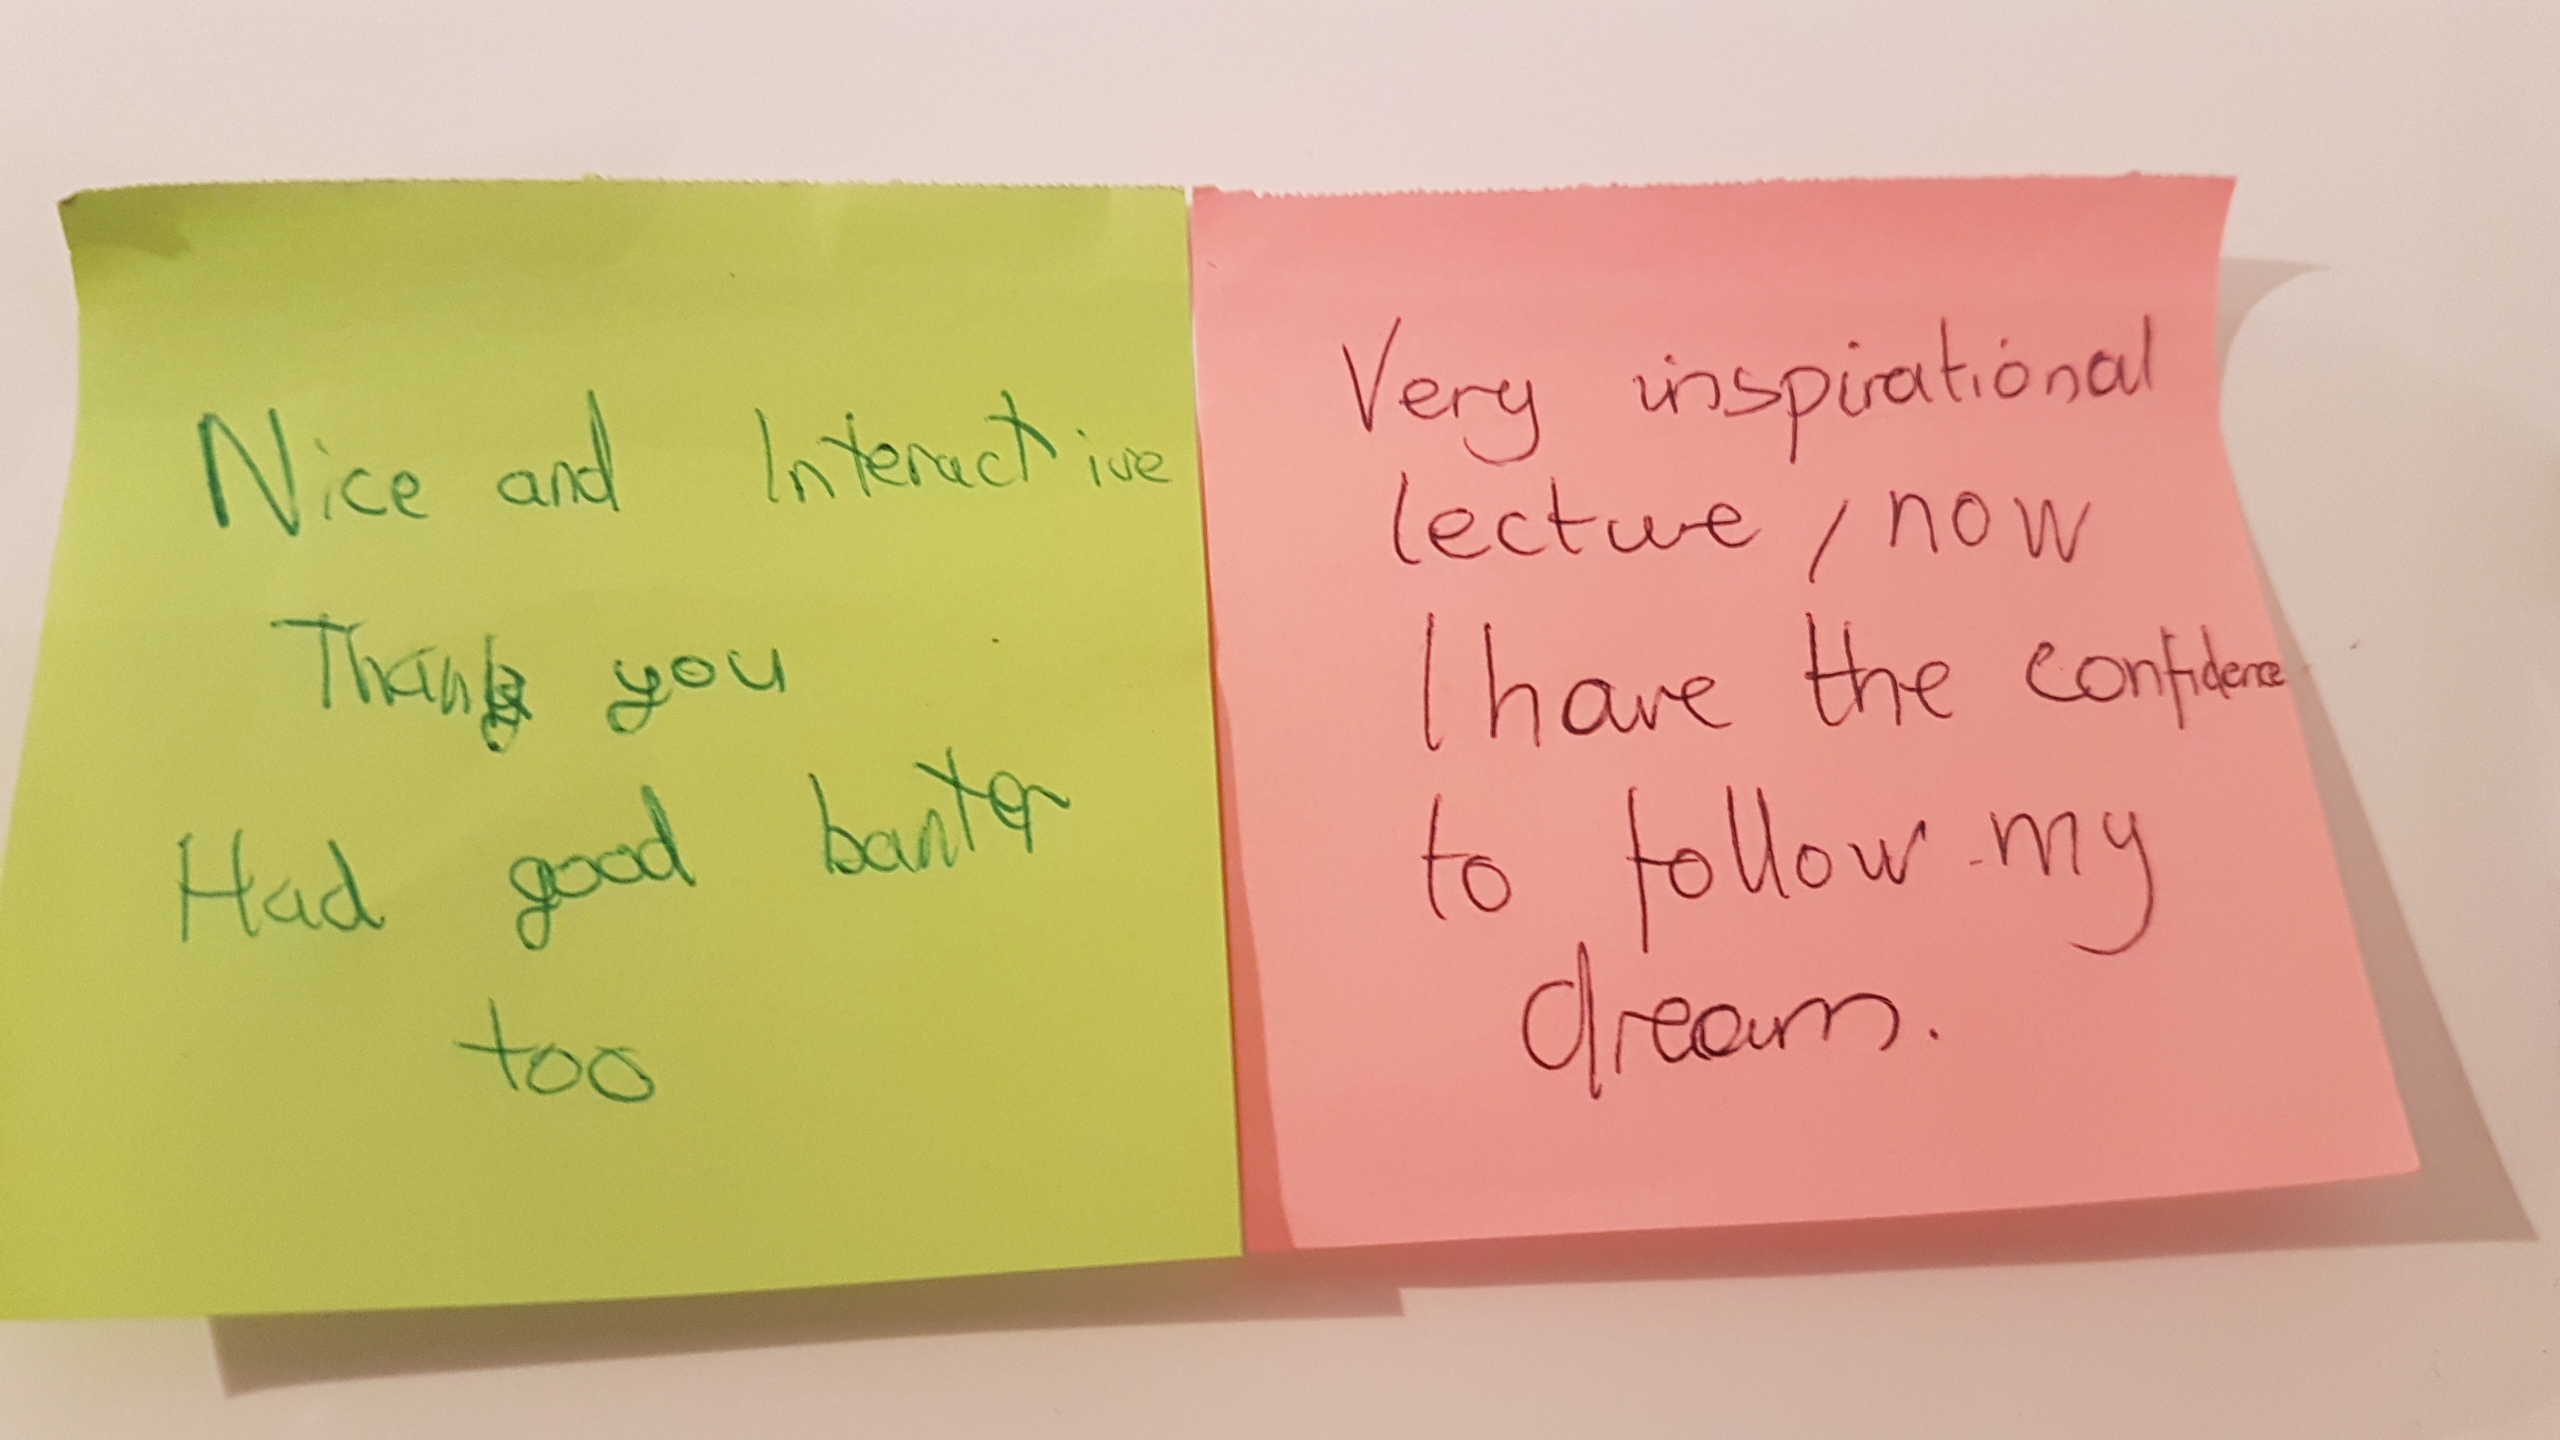 Nice and Interactive
Thank you
Had good banter
too
Very inspirational
lecture, now
I have the confidence
to follow my
dream.